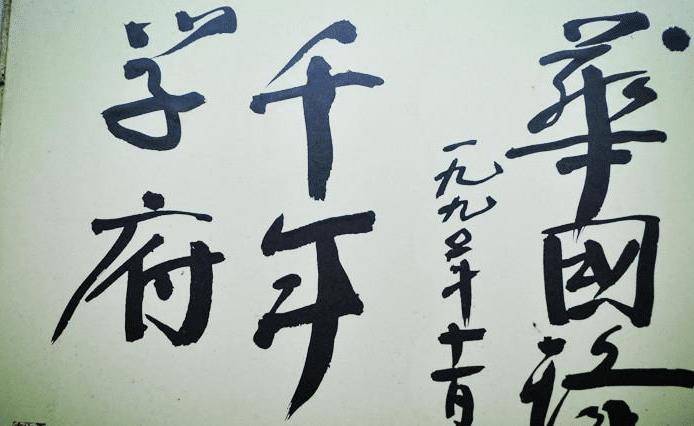 華國
一九九五年十一月
千年
学府